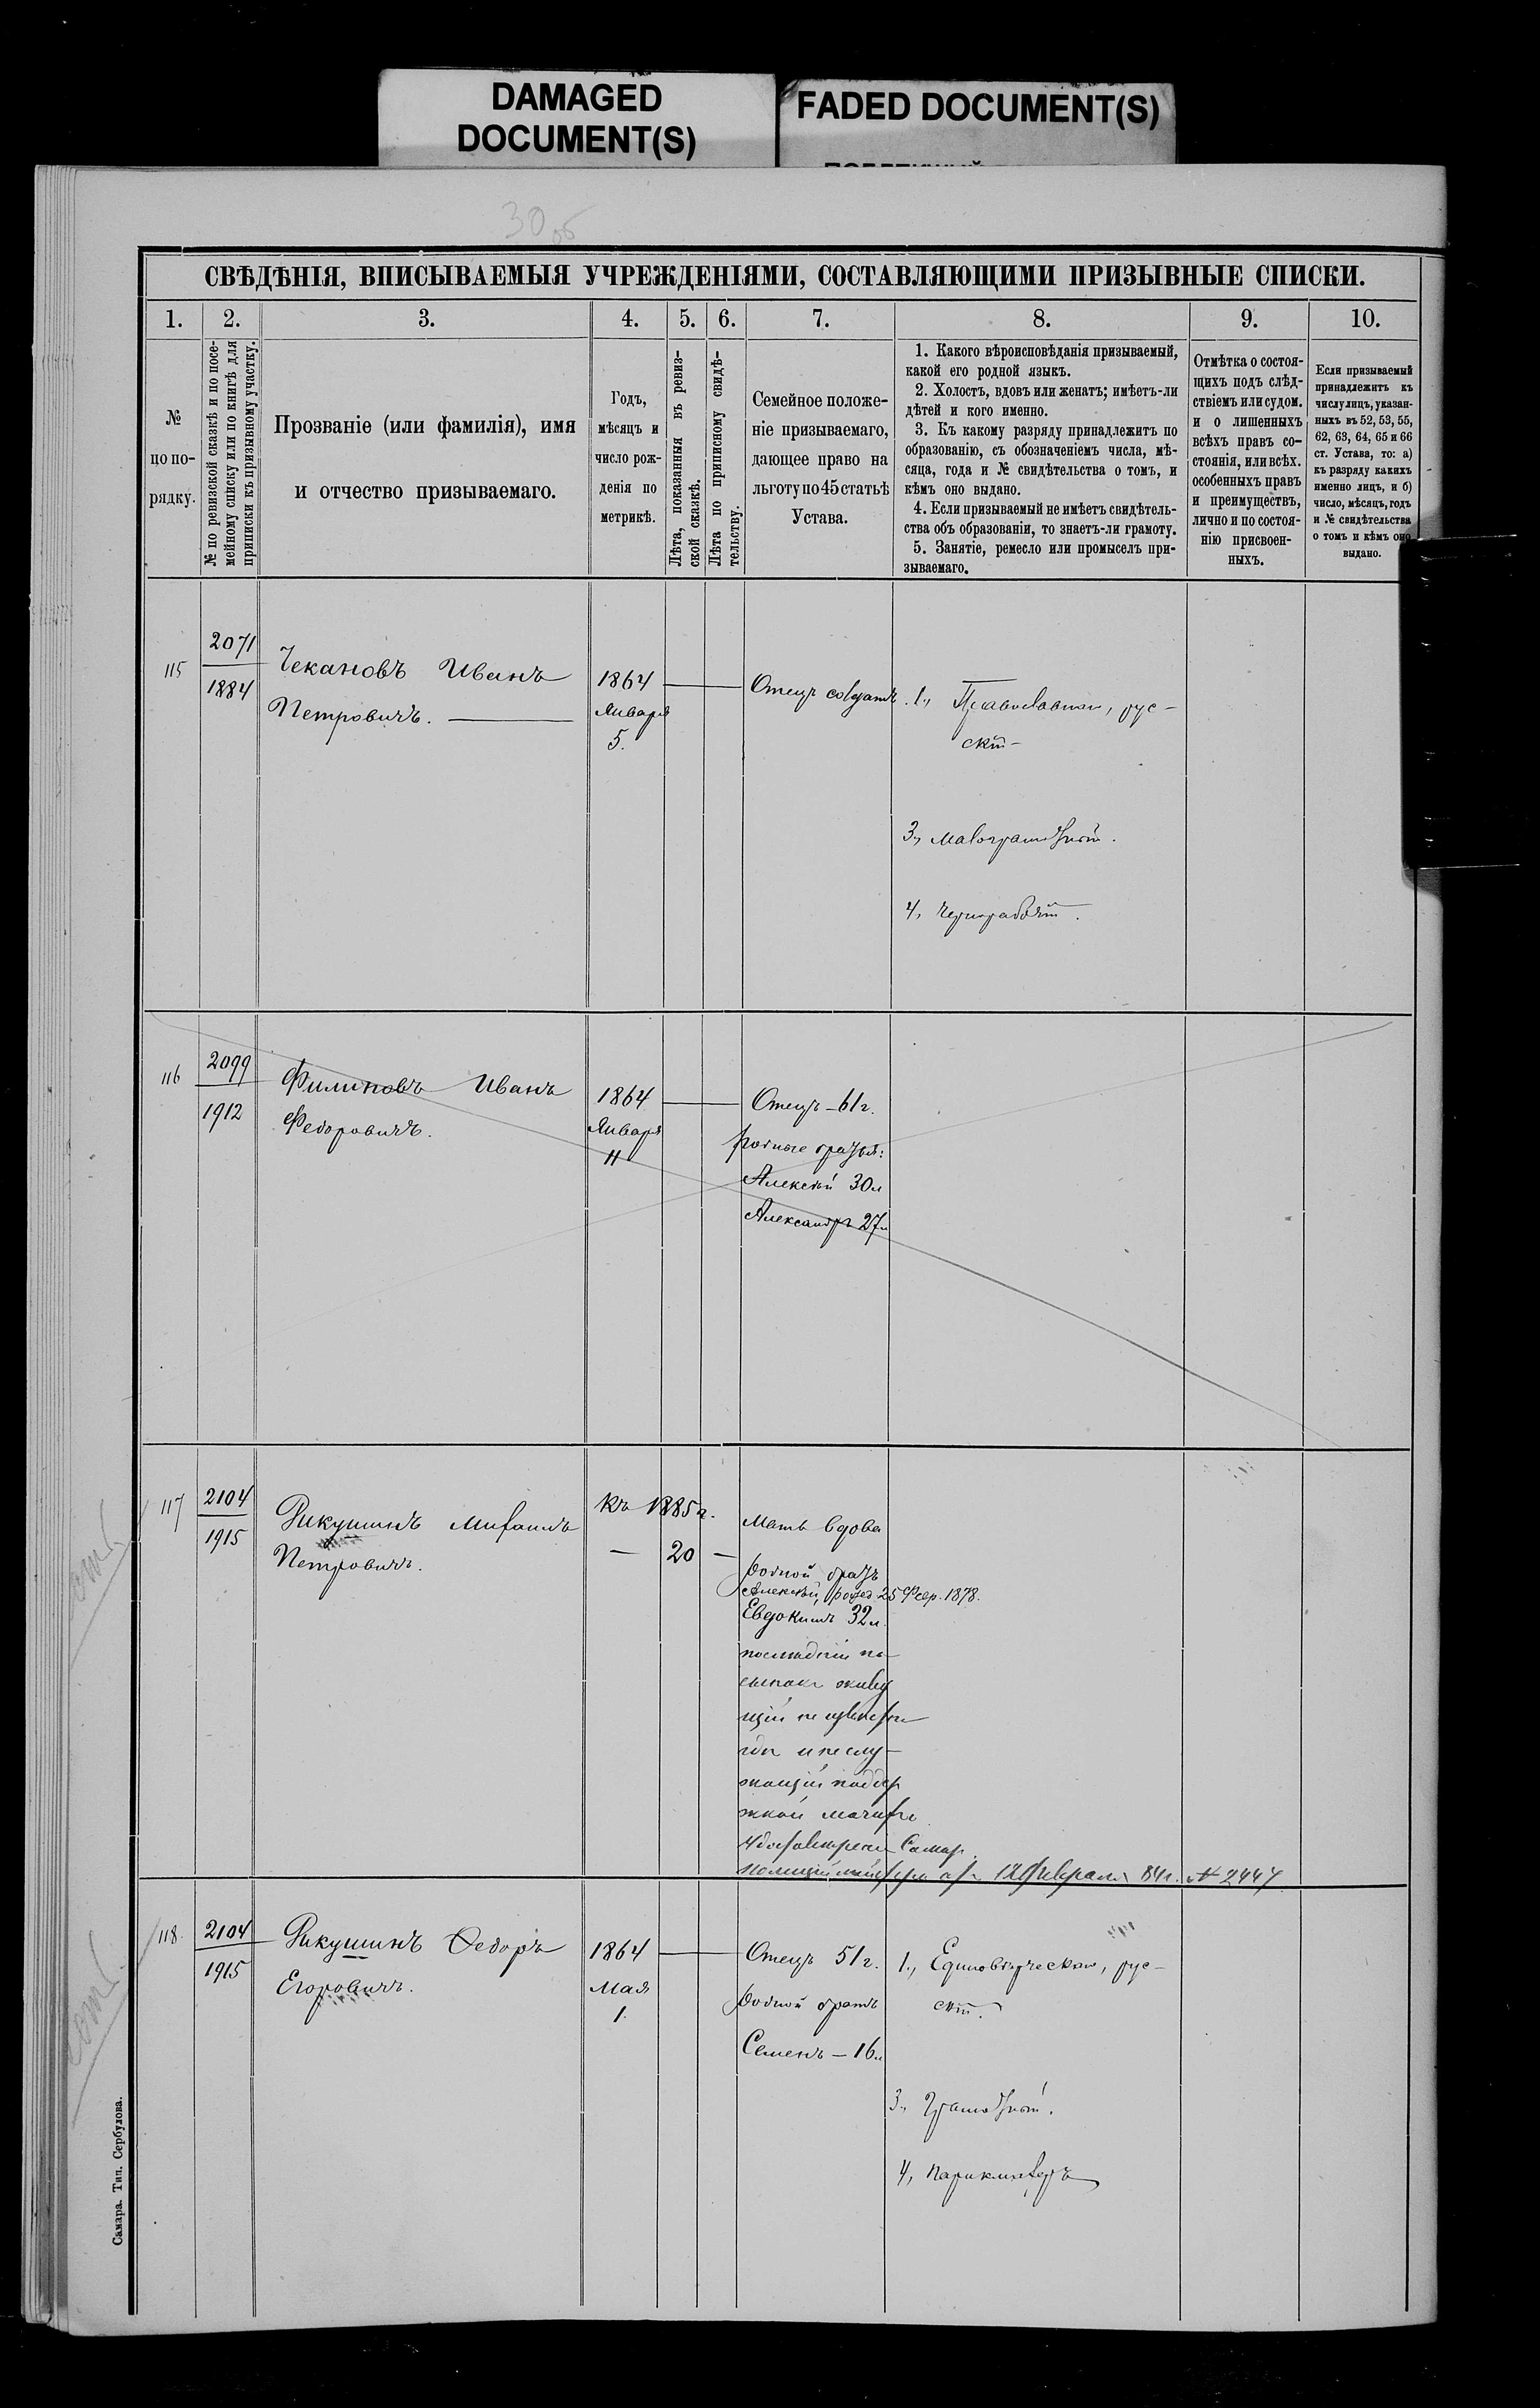 DAMAGED
DOCUMENT(S)
FADED DOCUMENT(S)
30 об
СВѢДѢНІЯ, ВПИСЫВАЕМЫЯ УЧРЕЖДЕНІЯМИ, СОСТАВЛЯЮЩИМИ ПРИЗЫВНЫЕ СПИСКИ.
1. 2. 3. 4. 5. 6. 7. 8. 9. 10.
№
по по-
рядку.
№ по ревизской сказкѣ и по посе-
мейному списку или по книгѣ для
приписки къ призывному участку.
Прозваніе (или фамилія), имя
и отчество призываемаго.
Годъ,
мѣсяцъ и
число рож-
денія по
метрикѣ.
Лѣта, показанныя въ ревиз-
ской сказкѣ.
Лѣта по приписному свидѣ-
тельству.
Семейное положе-
ніе призываемаго,
дающее право на
льготу по 45 статьѣ
Устава.
1. Какого вѣроисповѣданія призываемый,
какой его родной языкъ.
2. Холостъ, вдовъ или женатъ; имѣетъ-ли
дѣтей и кого именно.
3. Къ какому разряду принадлежитъ по
образованію, съ обозначеніемъ числа, мѣ-
сяца, года и № свидѣтельства о томъ, и
кѣмъ оно выдано.
4. Если призываемый не имѣетъ свидѣтель-
ства объ образованіи, то знаетъ-ли грамоту.
5. Занятіе, ремесло или промыселъ при-
зываемаго.
Отмѣтка о состоя-
щихъ подъ слѣд-
ствіемъ или судом.
и о лишенныхъ
всѣхъ правъ со-
стоянія, или всѣх.
особенныхъ правъ
и преимуществъ,
лично и по состоя-
нію присвоен-
ныхъ.
Если призываемый
принадлежитъ къ
числу лицъ, указан-
ныхъ въ 52, 53, 55,
62, 63, 64, 65 и 66
ст. Устава, то: а)
къ разряду какихъ
именно лицъ, и б)
число, мѣсяцъ, годъ
и № свидѣтельства
о томъ и кѣмъ оно
выдано.
115
2071
1884
Чекановъ Иванъ
Петровичъ.
1864
Января
5.
Отецъ солдатъ.
1., Православнаго, рус-
скій
3, малограмотный.
4, чернорабочій.
116
2099
1912
Филиповъ Иванъ
Федоровичъ.
1864
Января
11
Отецъ - 61 г.
родные братья:
Алексѣй 30 л
Александръ 27 л
117
2104
1915
Рикушинъ Михаилъ
Петровичъ.
Къ 1885 г.
20
Мать вдова
родной братъ
Алексѣй, рожд. 25 Февр. 1878.
Евдокимъ 32 л.
Самар.
12 Февраля 84 г. № 2447
118
2104
1915
Рикушинъ Федоръ
Егоровичъ.
1864
Мая
1.
Отецъ 51 г.
родной братъ
Семенъ - 16 л
1., Единовѣрческаго, рус-
скій.
3, Грамотный.
4, парикмахеръ
Самара. Тип. Сербулова.